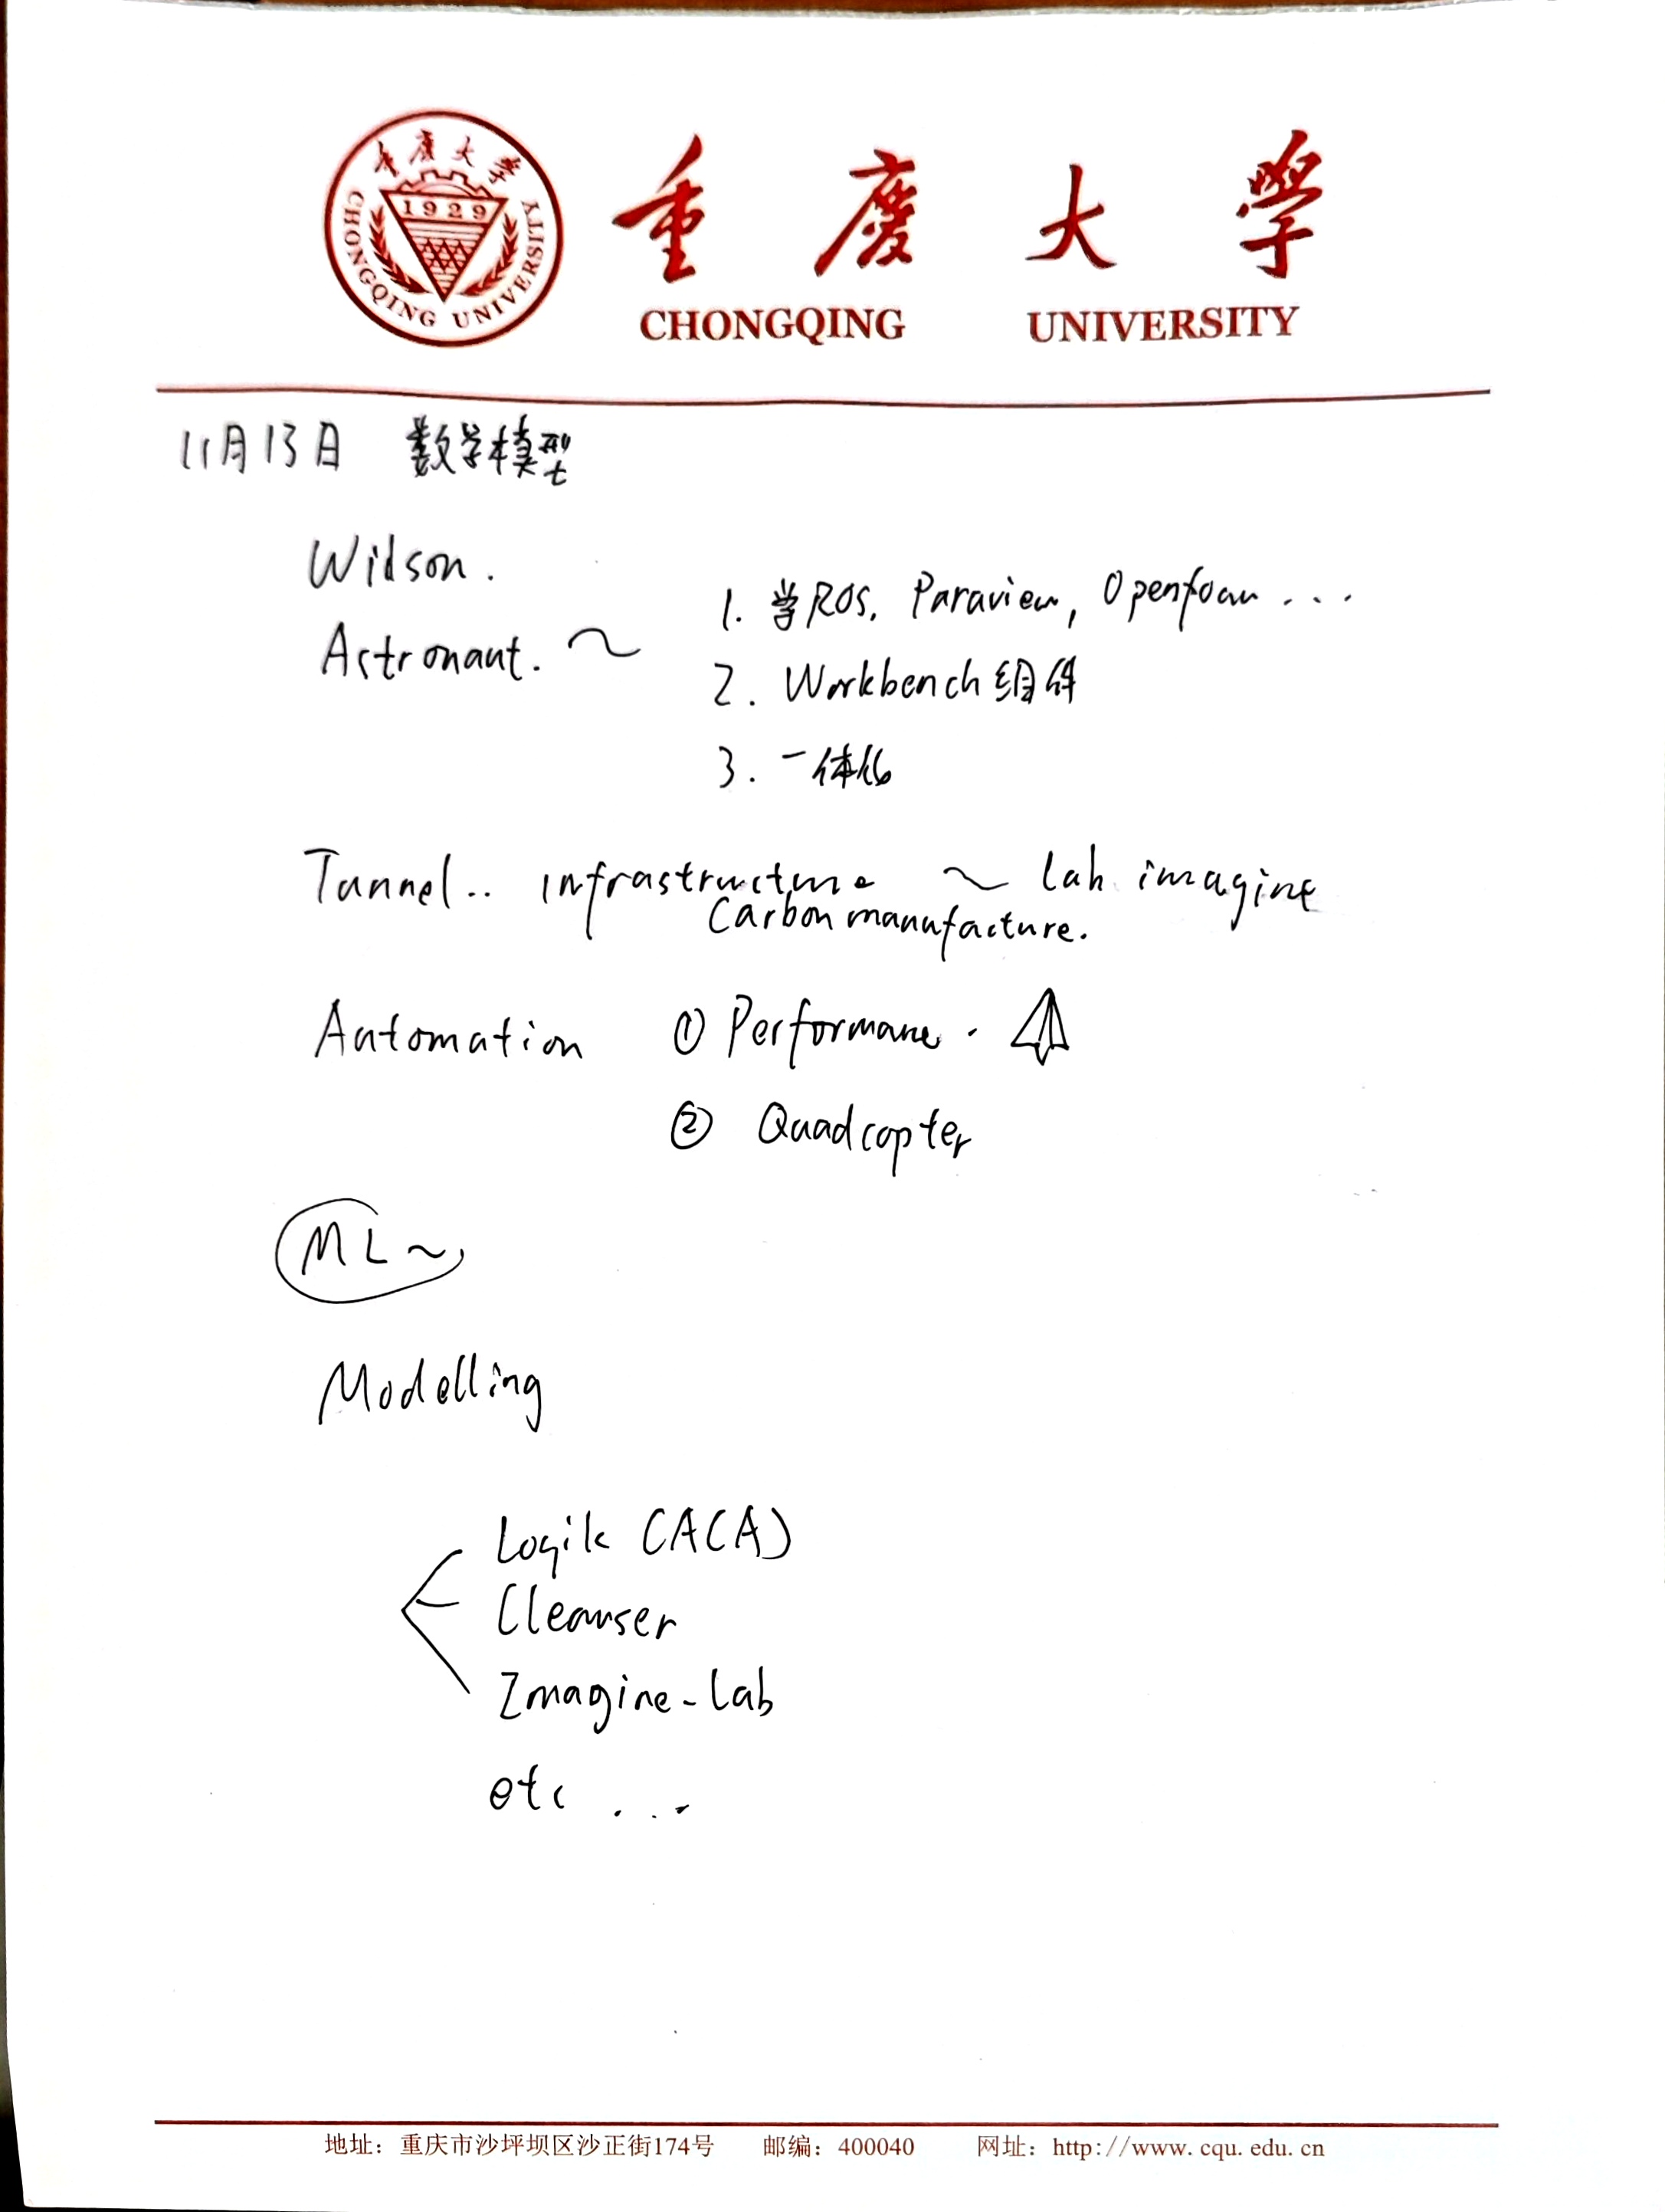 重庆大学
1929
CHONGQING UNIVERSITY
重慶大學
CHONGQING UNIVERSITY
11月13日 数学模型
Widson.
Astronaut. ~
1. 学ROS, Paraview, Openfoam ...
2. Workbench组件
3. 一体化
Tunnel.. infrastructure ~ lab imagine
Carbon manufacture.
Automation ① Performane.
② Quadcopter
ML~
Modelling
Logik CACA)
Cleanser
Imagine-lab
etc ...
地址：重庆市沙坪坝区沙正街174号 邮编：400040 网址：http://www.cqu.edu.cn